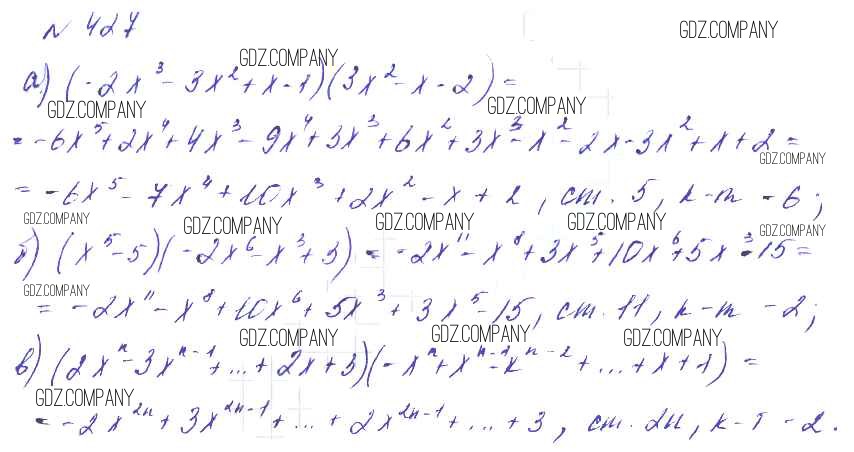 № 427
GDZ.COMPANY
GDZ.COMPANY
а) (-2x³ - 3x² + x - 1)(3x² - x - 2) =
GDZ.COMPANY
GDZ.COMPANY
= -6x⁵ + 2x⁴ + 4x³ - 9x⁴ + 3x³ + 6x² + 3x³ - x² - 2x - 3x² + x + 2 =
GDZ.COMPANY
= -6x⁵ - 7x⁴ + 10x³ + 2x² - x + 2, ст. 5, к-т -6;
GDZ.COMPANY
GDZ.COMPANY
GDZ.COMPANY
GDZ.COMPANY
GDZ.COMPANY
б) (x⁵ - 5)(-2x⁶ - x³ + 3) = -2x¹¹ - x⁸ + 3x⁵ + 10x⁶ + 5x³ - 15 =
GDZ.COMPANY
= -2x¹¹ - x⁸ + 10x⁶ + 5x³ + 3x⁵ - 15, ст. 11, к-т -2;
GDZ.COMPANY
GDZ.COMPANY
GDZ.COMPANY
в) (2xⁿ - 3xⁿ⁻¹ + ... + 2x + 3)(-xⁿ + xⁿ⁻¹ - xⁿ⁻² + ... + x + 1) =
GDZ.COMPANY
= -2x²ⁿ + 3x²ⁿ⁻¹ + ... + 2x²ⁿ⁻¹ + ... + 3, ст. 2n, к-т -2.